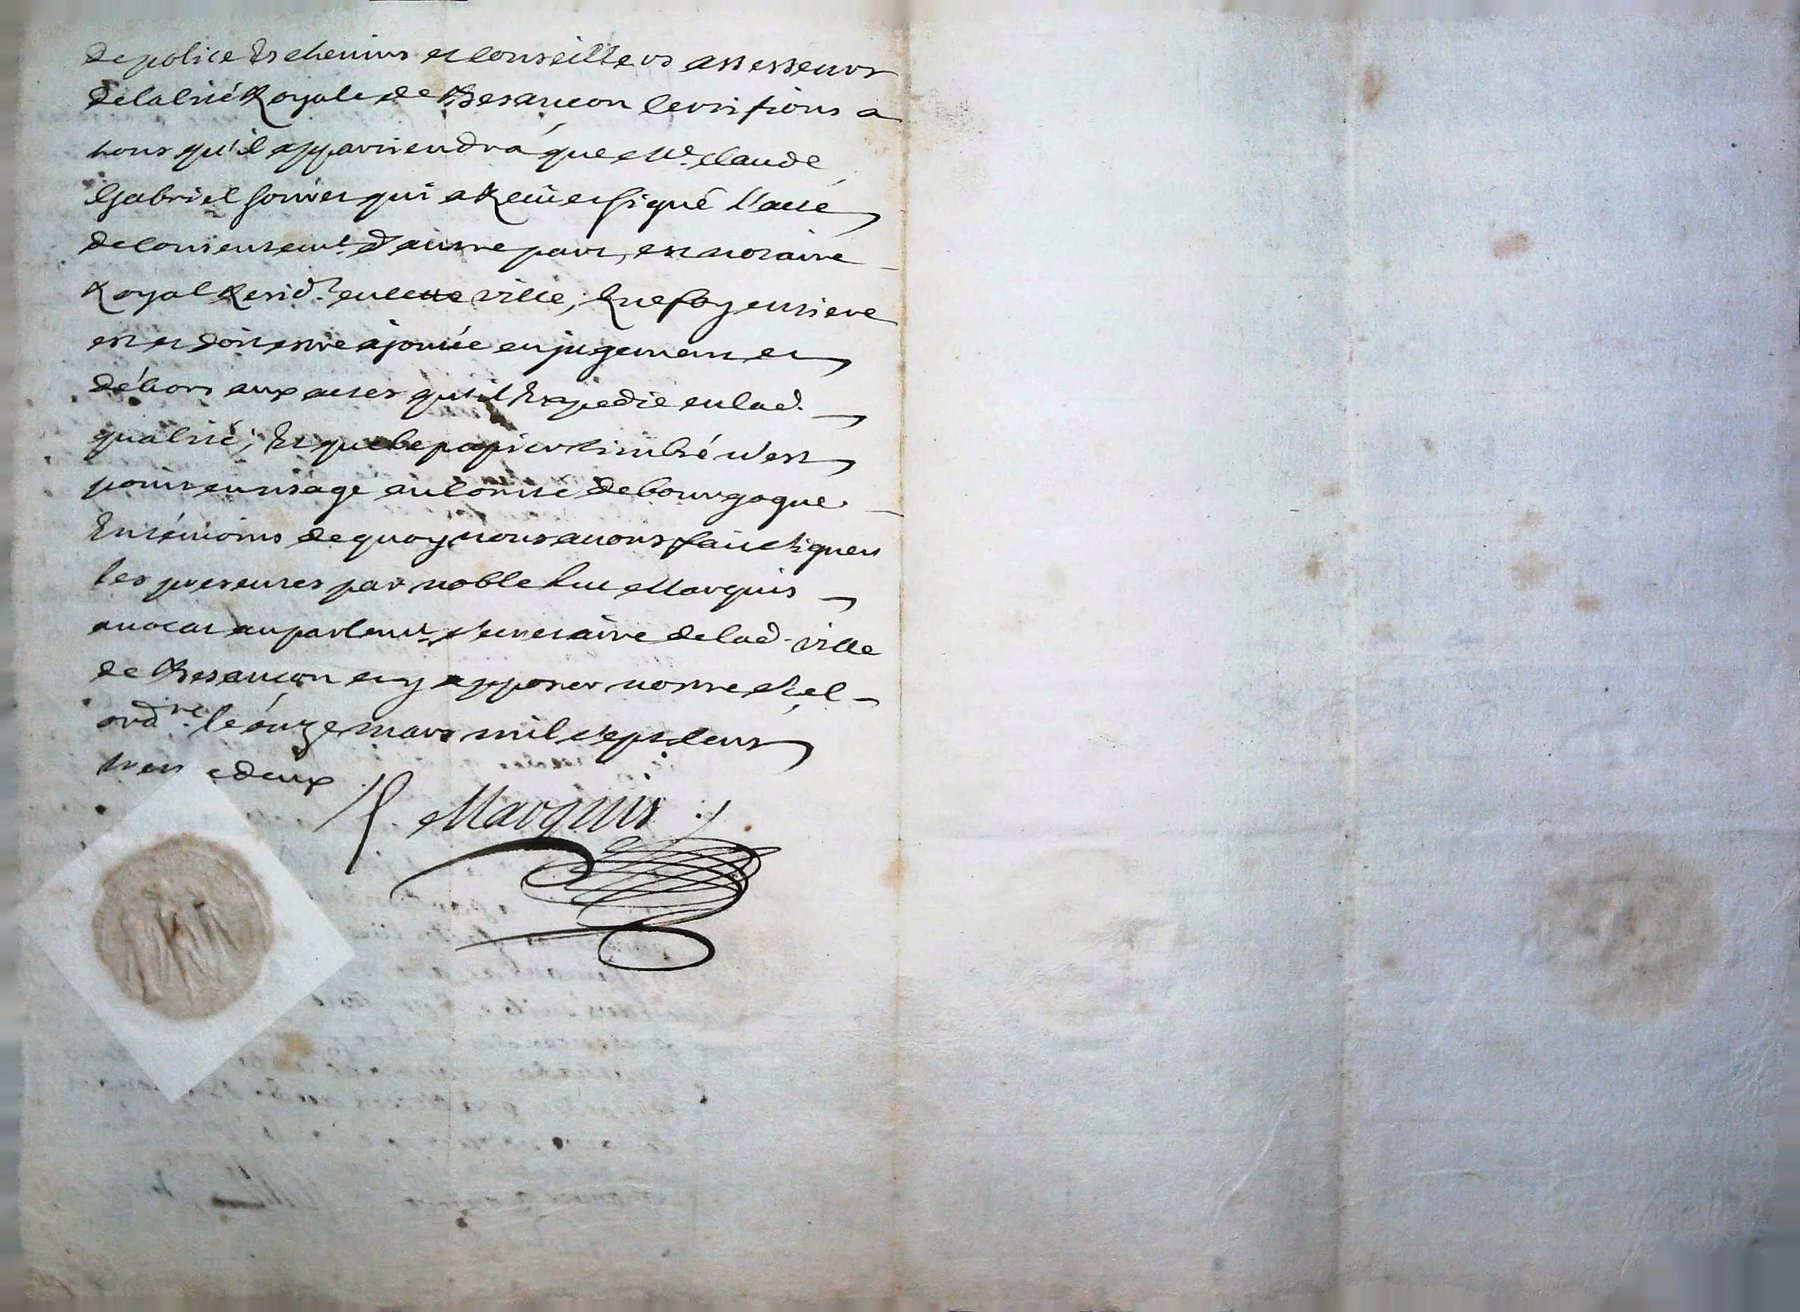 de police Eschevins et conseillers assesseurs
de la cité Royale de Besancon Certifions a
tous qu'il appartiendrá que Me. Claude
Gabriel qui a Receu et signé l'acte
de consentemt. d'autre part, est notaire
Royal Resid.t en cette ville, que foy entiere
est et doit estre ajoutée en jugement et
déhors aux actes qu'il Expedie en lad.
qualité; Et que le papier timbré n'est
point en usage au Comté de bourgogne.
En témoins de quoy nous avons fait signer
les presentes par noble Luc Marquis
avocat au parlemt. secretaire de lad. ville
de Besancon et y apposer nostre scel
ord.re le onze mars mil sept cent
trente deux
Marquis